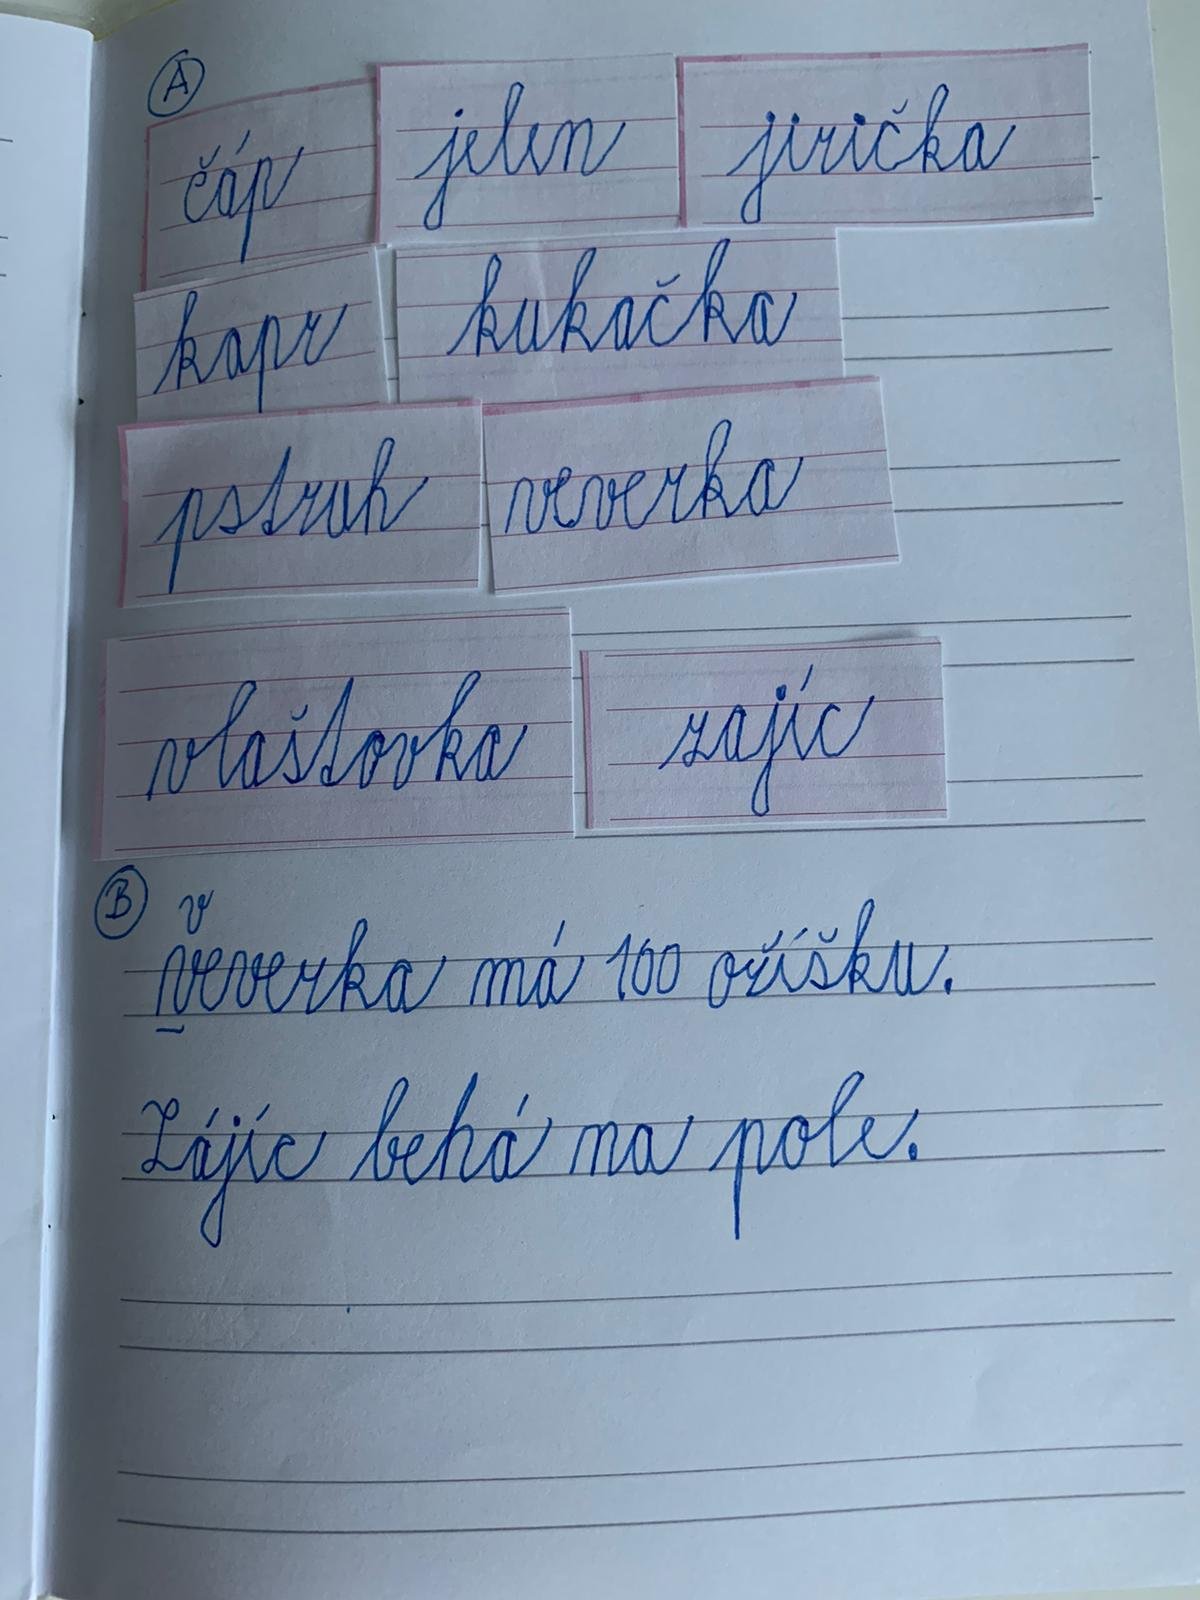 A
čáp jelen jirička
kapr kukačka
pstruh veverka
vlaštovka zajíc
B v
veverka má 100 oříšku.
Zájíc behá na pole.